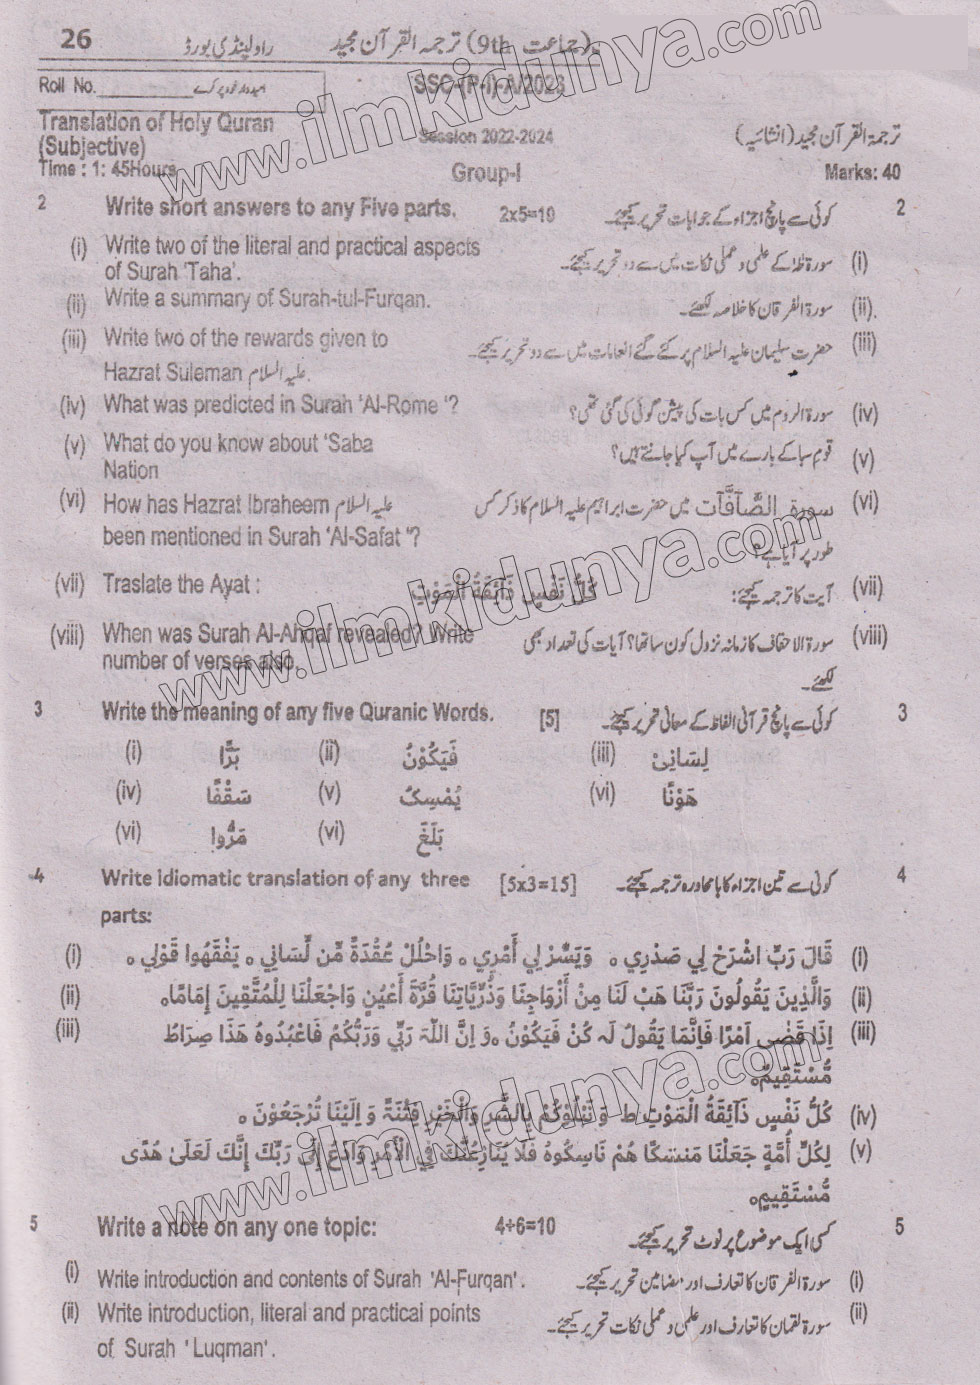 26 راولپنڈی بورڈ (جماعت 9th) ترجمہ القرآن مجید
Roll No. امیدوار خود پر کرے SSC-(P-I)-A/2023
Translation of Holy Quran
(Subjective) Session 2022-2024 ترجمۃ القرآن مجید (انشائیہ)
Time : 1: 45Hours Group-I Marks: 40
2 Write short answers to any Five parts. 2x5=10 کوئی سے پانچ اجزاء کے جوابات تحریر کیجئے۔ 2
(i) Write two of the literal and practical aspects of Surah 'Taha'. سورۃ طہٰ کے علمی و عملی نکات میں سے دو تحریر کیجئے۔ (i)
(ii) Write a summary of Surah-tul-Furqan. سورۃ الفرقان کا خلاصہ لکھئے۔ (ii).
(iii) Write two of the rewards given to Hazrat Suleman علیہ السلام. حضرت سلیمان علیہ السلام پر کئے گئے انعامات میں سے دو تحریر کیجئے۔ (iii)
(iv) What was predicted in Surah 'Al-Rome '? سورۃ الروم میں کس بات کی پیشن گوئی کی گئی تھی؟ (iv)
(v) What do you know about 'Saba Nation قوم سبا کے بارے میں آپ کیا جانتے ہیں؟ (v)
(vi) How has Hazrat Ibraheem علیہ السلام been mentioned in Surah 'Al-Safat '? سورۃ الصَّآفَّآت میں حضرت ابراہیم علیہ السلام کا ذکر کس طور پر آیا ہے؟ (vi)
(vii) Traslate the Ayat : كُلُّ نَفْسٍ ذَآئِقَةُ الْمَوْتِ آیت کا ترجمہ کیجئے: (vii)
(viii) When was Surah Al-Ahqaf revealed? Write number of verses also. سورۃ الاحقاف کا زمانہ نزول کون سا تھا؟ آیات کی تعداد بھی لکھئے۔ (viii)
3 Write the meaning of any five Quranic Words. [5] کوئی سے پانچ قرآنی الفاظ کے معانی تحریر کیجئے۔ 3
(i) بَرًّا (ii) فَيَكُوْنُ (iii) لِسَانِىْ
(iv) سَقْفًا (v) يُمْسِكُ (vi) هَوْنًا
(vi) مَرُّوا (vi) بَلَغَ
4 Write idiomatic translation of any three parts: [5x3=15] کوئی سے تین اجزاء کا بامحاورہ ترجمہ کیجئے۔ 4
(i) قَالَ رَبِّ اشْرَحْ لِي صَدْرِي ۰ وَيَسِّرْ لِي أَمْرِي ۰ وَاحْلُلْ عُقْدَةً مِّن لِّسَانِي ۰ يَفْقَهُوا قَوْلِي ۰ (i)
(ii) وَالَّذِينَ يَقُولُونَ رَبَّنَا هَبْ لَنَا مِنْ أَزْوَاجِنَا وَذُرِّيَّاتِنَا قُرَّةَ أَعْيُنٍ وَاجْعَلْنَا لِلْمُتَّقِينَ إِمَامًا۰ (ii)
(iii) اِذَا قَضٰى اَمْرًا فَاِنَّمَا يَقُولُ لَہ كُنْ فَيَكُوْنُ ۰و اِنَّ اللّٰهَ رَبِّي وَرَبُّكُمْ فَاعْبُدُوهُ هَذَا صِرَاطٌ مُّسْتَقِيمٌ۰ (iii)
كُلُّ نَفْسٍ ذَآئِقَةُ الْمَوْتِ ط وَ نَبْلُوْكُمْ بِالشَّرِّ وَالْخَيْرِ فِتْنَةً وَ اِلَيْنَا تُرْجَعُوْنَ ۰ (iv)
لِكُلِّ أُمَّةٍ جَعَلْنَا مَنسَكًا هُمْ نَاسِكُوهُ فَلَا يُنَازِعُنَّكَ فِي الْأَمْرِ وَادْعُ إِلَى رَبِّكَ إِنَّكَ لَعَلَىٰ هُدًى مُّسْتَقِيمٍ۰ (v)
5 Write a note on any one topic: 4+6=10 کسی ایک موضوع پر نوٹ تحریر کیجئے۔ 5
(i) Write introduction and contents of Surah 'Al-Furqan'. سورۃ الفرقان کا تعارف اور مضامین تحریر کیجئے۔ (i)
(ii) Write introduction, literal and practical points of Surah ' Luqman'. سورۃ لقمان کا تعارف اور علمی و عملی نکات تحریر کیجئے۔ (ii)
www.ilmkidunya.com
www.ilmkidunya.com
www.ilmkidunya.com